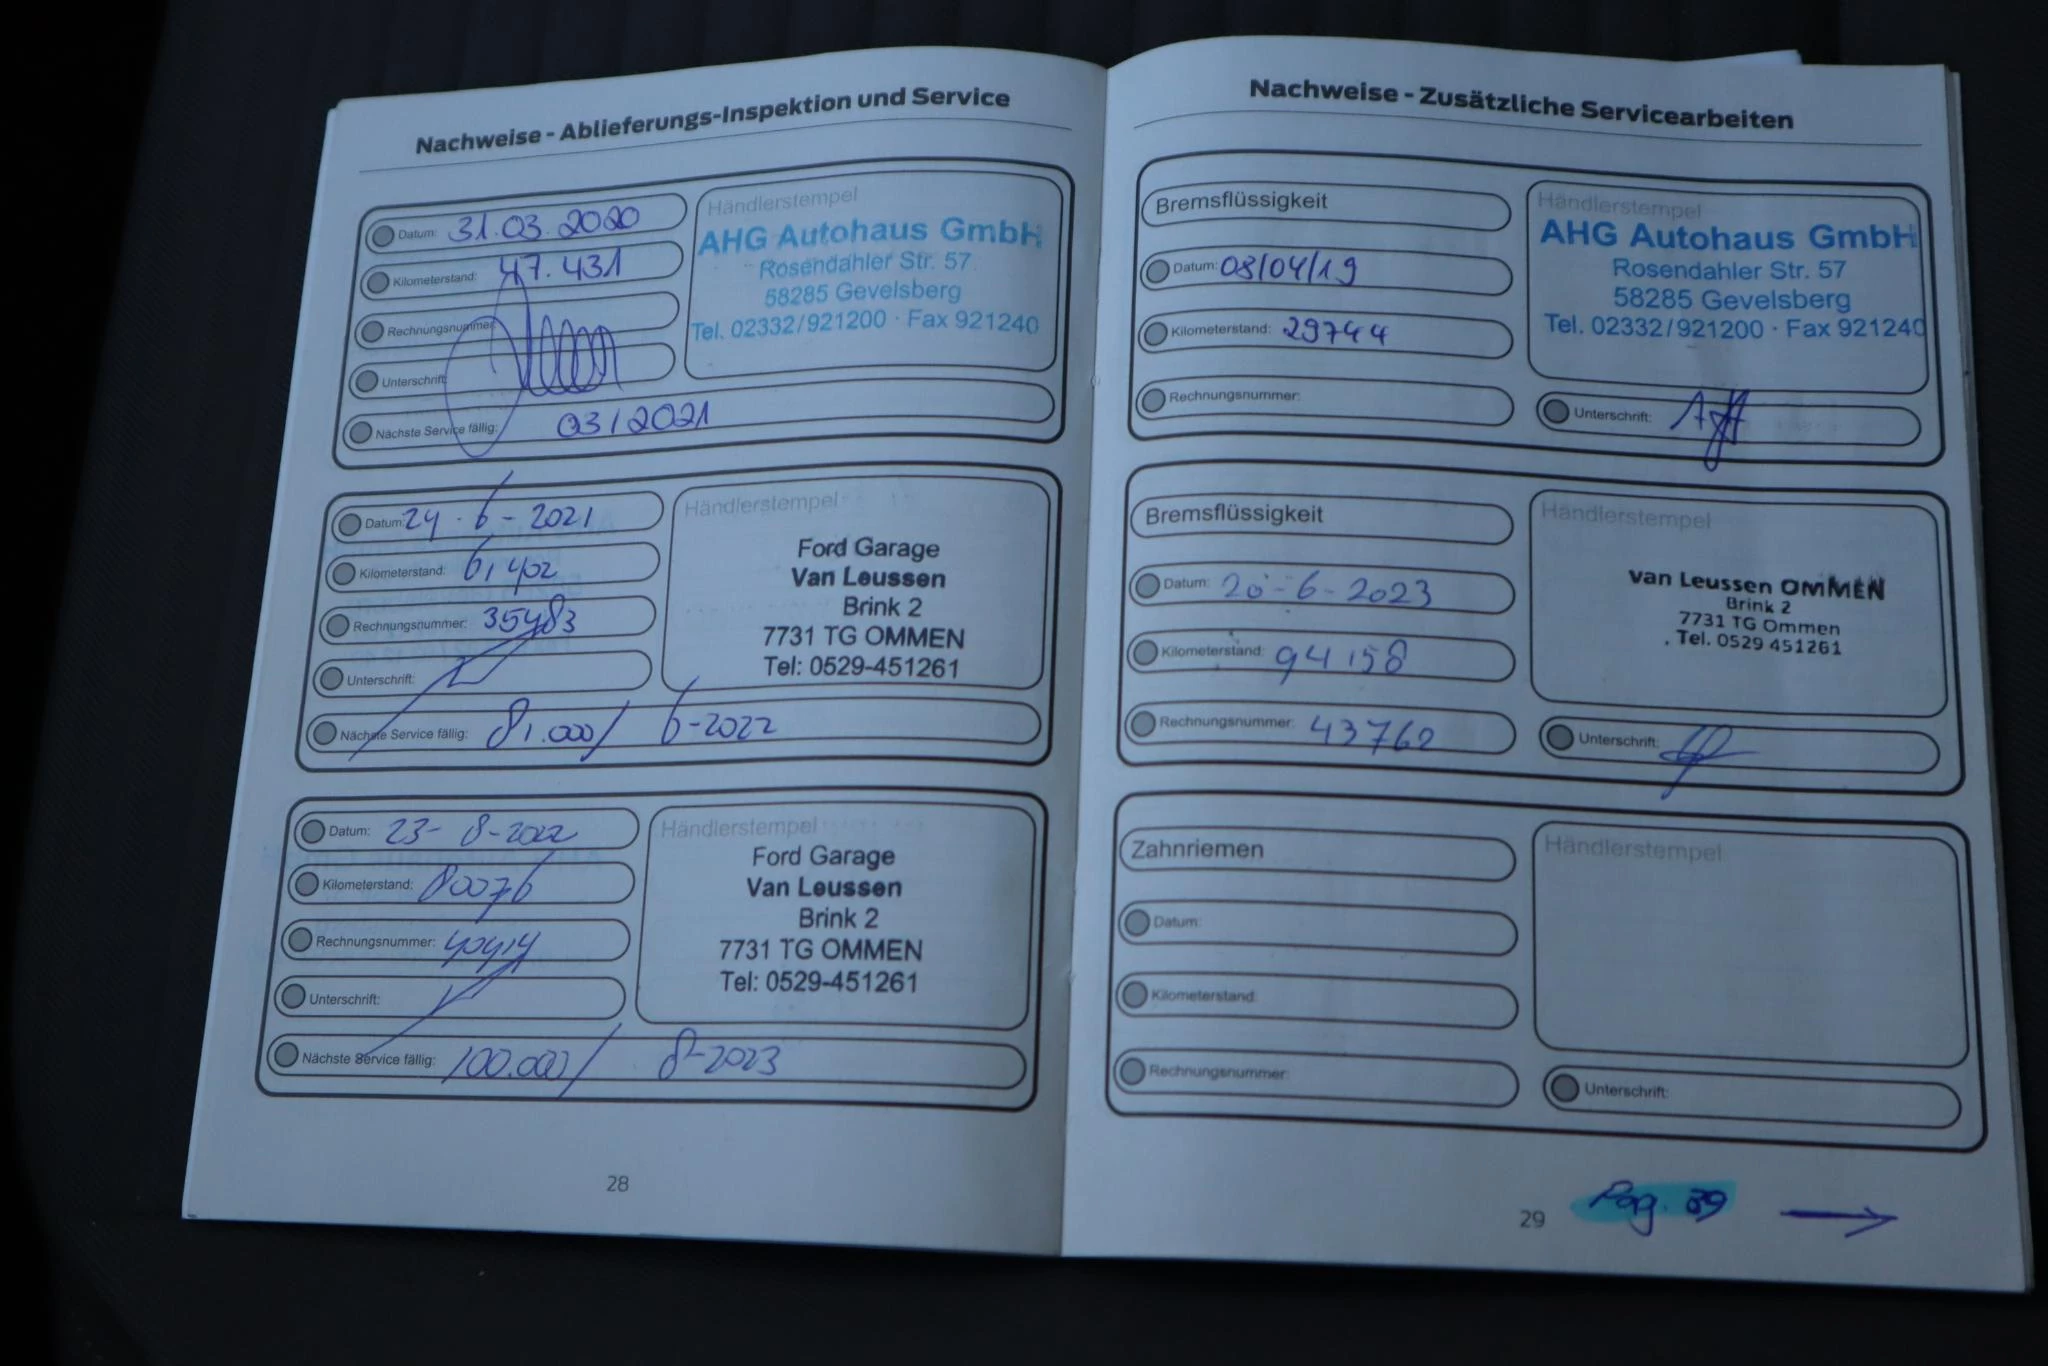 Nachweise - Ablieferungs-Inspektion und Service
Datum: 31.03.2020
Kilometerstand: 47.431
Rechnungsnummer:
Unterschrift:
Nächste Service fällig: 03/2021
Händlerstempel
AHG Autohaus GmbH
Rosendahler Str. 57
58285 Gevelsberg
Tel. 02332/921200 · Fax 921240
Datum: 24-6-2021
Kilometerstand: 61402
Rechnungsnummer: 35483
Unterschrift:
Nächste Service fällig: 81.000/ 6-2022
Händlerstempel
Ford Garage
Van Leussen
Brink 2
7731 TG OMMEN
Tel: 0529-451261
Datum: 23-8-2022
Kilometerstand: 80076
Rechnungsnummer: 40414
Unterschrift:
Nächste Service fällig: 100.000/ 8-2023
Händlerstempel
Ford Garage
Van Leussen
Brink 2
7731 TG OMMEN
Tel: 0529-451261
28
Nachweise - Zusätzliche Servicearbeiten
Bremsflüssigkeit
Datum: 08/04/19
Kilometerstand: 29744
Rechnungsnummer:
Händlerstempel
AHG Autohaus GmbH
Rosendahler Str. 57
58285 Gevelsberg
Tel. 02332/921200 · Fax 921240
Unterschrift:
Bremsflüssigkeit
Datum: 20-6-2023
Kilometerstand: 94158
Rechnungsnummer: 43762
Händlerstempel
Van Leussen OMMEN
Brink 2
7731 TG Ommen
Tel. 0529 451261
Unterschrift:
Zahnriemen
Datum:
Kilometerstand:
Rechnungsnummer:
Händlerstempel
Unterschrift:
29
Pag. 39